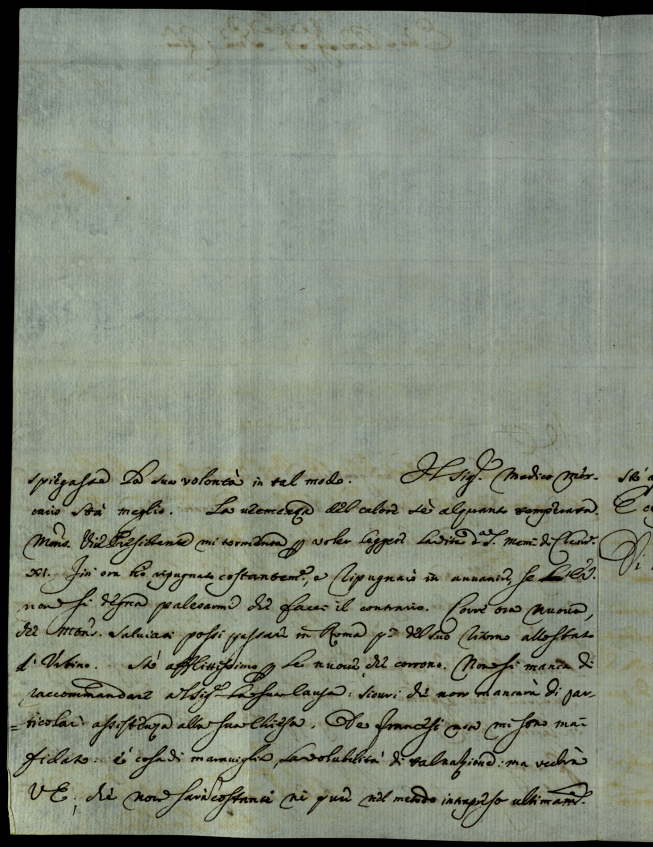 spiegasse la sua volontà in tal modo. Il Sig.r Medico Mer-
curio stà meglio. La veemenza del calore s'è alquanto temperata.
Mons. Vice Presidente mi tormenta p voler leggere la vita d S. mem. di Clem.
XI. Fin ora hò ripugnato costantem.e, e ripugnarò in avvenire, se V. E.
non si degna palesarmi di fare il contrario. Corre ora nuova,
che Mons. Salviati possi passare in Roma p.a del suo ritorno allo stato
d'Urbino. Stò afflittissimo p le nuove che corrono. Non si manca di
raccommandare al Sig. la sua causa: sicuri che non mancarà di par-
ticolare assistenza alla sua Chiesa. De francesi non mi sono mai
fidato: è cosa di maraviglia la volubilità di tal nazione: ma vedrà
V E, che non sarà costante nè pure nel metodo intrapreso ultimam.e
stò a
E co
Di